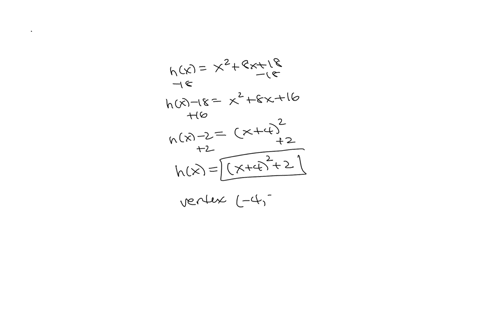 h(x) = x²+8x+18
-18 -18
h(x)-18 = x²+8x+16
+16
h(x)-2 = (x+4)²
+2 +2
h(x) = (x+4)²+2
vertex (-4,